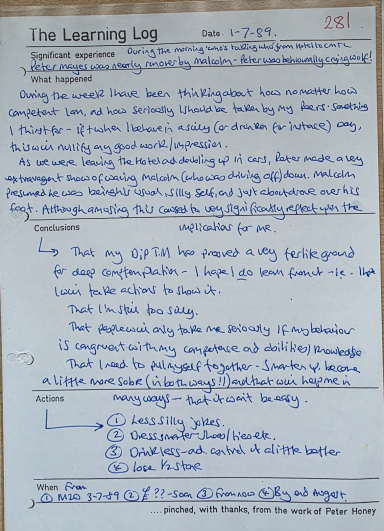 281
The Learning Log Date 1-7-89.
Significant experience During the morning 'who's taking who' from Hotel to CMTC
Peter Mayes was nearly run over by Malcolm - Peter was behaviourally crying wolf!
What happened
During the week I have been thinking about how no matter how
competent I am, and how seriously I should be taken by my peers - something
I thirst for - if when I behave in a silly (or drunken for instance) way,
this will nullify any good work/impression.
As we were leaving the Hotel and doubling up in cars, Peter made a very
extravagent show of waving Malcolm (who was driving off) down. Malcolm
presumed he was being his usual, silly self, and just about drove over his
foot. Although amusing this caused to very significantly reflect upon the
implications for me.
Conclusions
That my Dip T.M has proved a very fertile ground
for deep contemplation - I hope I do learn from it - i.e. that
I will take actions to show it.
That I'm still too silly.
That people will only take me seriously if my behaviour
is congruent with my competence and abilities/knowledge
That I need to pull myself together - Smarten up, become
a little more sober (in both ways!!) and that will help me in
many ways - that it won't be easy.
Actions
① Less silly jokes.
② Dress smarter - shoes/ties etc.
③ Drink less - and control it a little better
④ Lose 1/2 stone
When From
① M20 3-7-89 ② £ ?? - soon ③ From now ④ By end August.
.... pinched, with thanks, from the work of Peter Honey